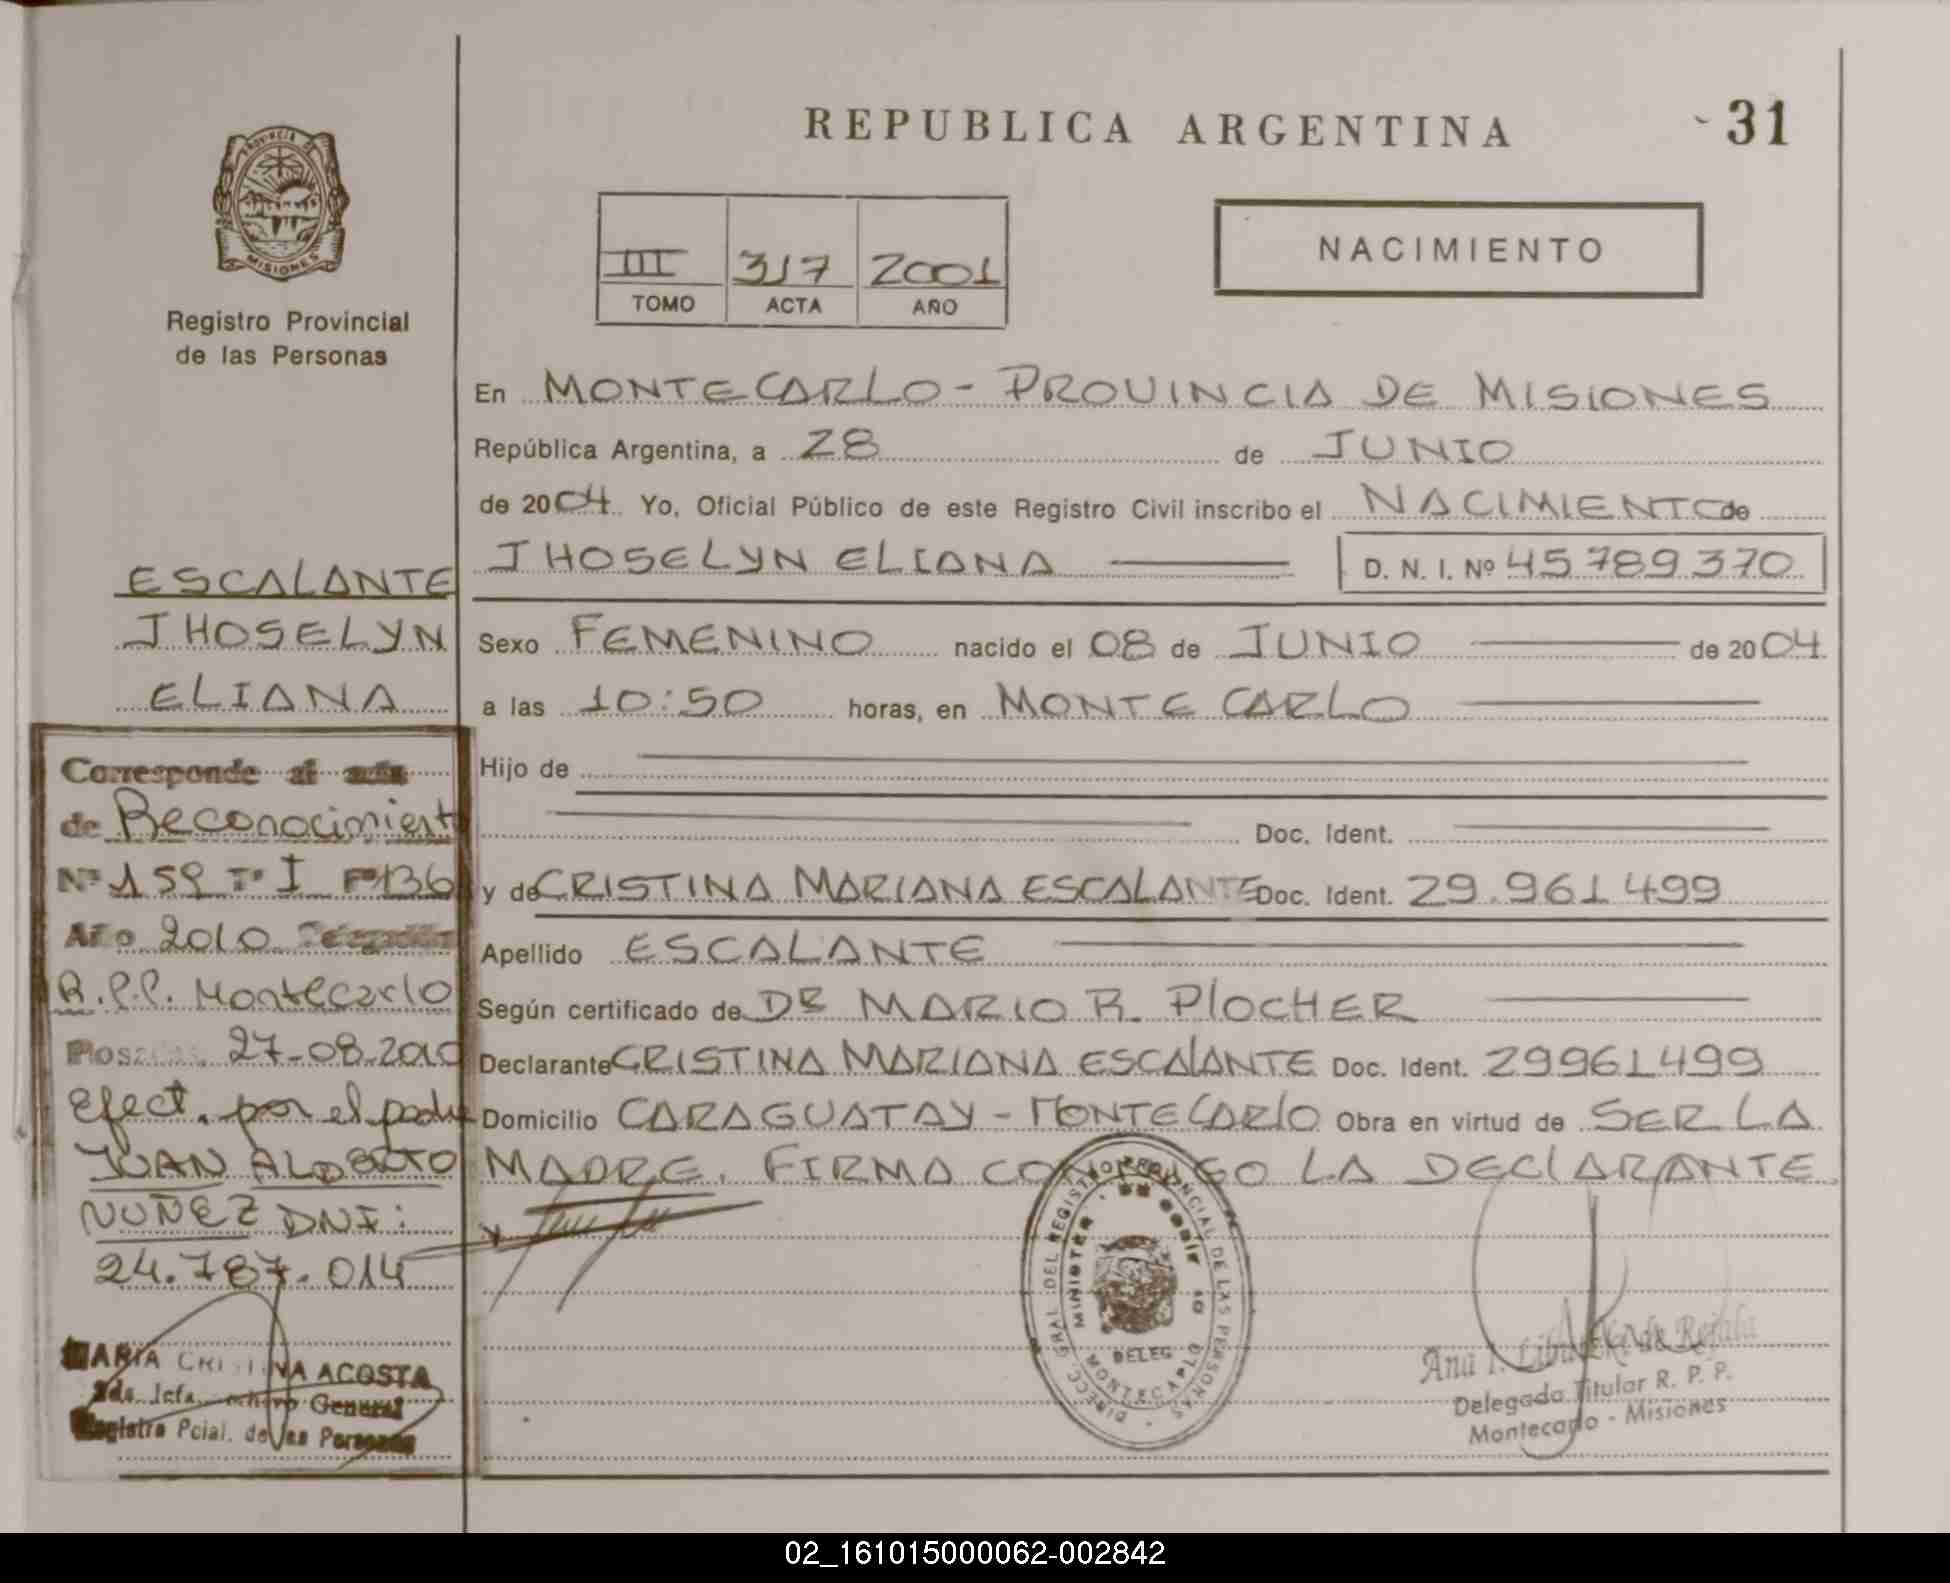 REPUBLICA ARGENTINA
31
PROVINCIA DE
MISIONES
Registro Provincial
de las Personas
III 317 2001
TOMO ACTA AÑO
NACIMIENTO
En MONTECARLO - PROVINCIA DE MISIONES
República Argentina, a 28 de JUNIO
de 2004 Yo, Oficial Público de este Registro Civil inscribo el NACIMIENTO de
JHOSELYN ELIANA D. N. I. Nº 45789370
Sexo FEMENINO nacido el 08 de JUNIO de 2004
a las 10:50 horas, en MONTE CARLO
Hijo de
Doc. Ident.
y de CRISTINA MARIANA ESCALANTE Doc. Ident. 29.961499
Apellido ESCALANTE
Según certificado de DR MARIO R. PLOCHER
Declarante CRISTINA MARIANA ESCALANTE Doc. Ident. 29961499
Domicilio CARAGUATAY - MONTECARLO Obra en virtud de SER LA
MADRE. FIRMA CONMIGO LA DECLARANTE
ESCALANTE
JHOSELYN
ELIANA
Corresponde al acta
de Reconocimiento
Nº 159 Tº I Fº 136
Año 2010 Delegación
R.P.P. Montecarlo
Posadas, 27-08-2010
Efect. por el padre
JUAN ALBERTO
NUÑEZ DNI:
24.787.014
MARIA CRISTINA ACOSTA
2da. Jefa Archivo General
Registro Pcial. de las Personas
DIRECC. GRAL. DEL REGISTRO PROVINCIAL DE LAS PERSONAS
DELEG
MONTECARLO
Delegada Titular R. P. P.
Montecarlo - Misiones
02_161015000062-002842